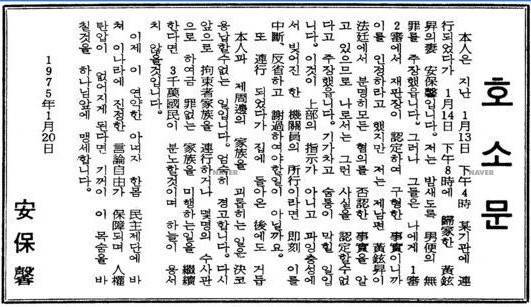 호소문
본인은 지난 1月13日 下午4時 某기관에 連
行되었다가 1月14日 下午8時에 歸家한 黃鉉
昇의妻 安保馨입니다. 저는 밤새도록 男便의 無
罪를 주장했읍니다. 그러나 그들은 나에게 1審
2審에서 재판장이 認定하여 구형한 事實이니까
이를 인정하라고 했지만 저는 제남편 黃鉉昇이
法廷에서 분명히모든 혐의를 否認한 事實을 알
고 있으므로 나로서는 그런 사실을 認定할수없
다고 주장했읍니다. 기가차고 숨통이 막힐 일입
니다. 이것이 上部의 指示가 아니고 과잉충성에
서 빚어진 한 機關員의 所行이라면 即刻 이를
中斷、反省하고 謝過하여야할일이 아닐까요.
또 連行 되었다가 집에 돌아온 後에도 거듭
本人과 제周邊의 家族을 괴롭히는 일은 決코
용납할수없는 일입니다. 엄숙히 경고합니다. 다시
앞으로 拘束者家族을 連行하거나 몇명의 수사관
으로 하여금 罪없는 家族을 미행하는일을 繼續
한다면 3千萬國民이 분노할것이며 하늘이 용서
치 않을것입니다.
이제 이 연약한 아녀자 한몸 民主제단에 바
쳐 이나라에 진정한 言論自由가 保障되며 人權
탄압이 없어지게 된다면 기꺼이 이 목숨을 바
칠것을 하나님앞에 맹세합니다.
1975年1月20日
安保馨
NAVER
NAVER